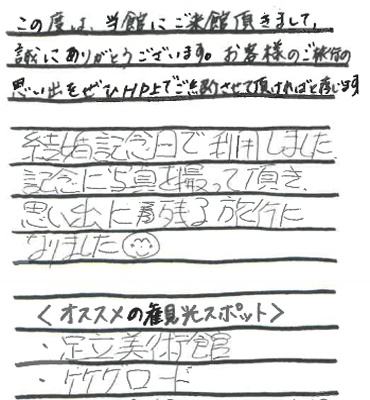 この度は、当館にご来館頂きまして、
誠にありがとうございます。お客様のご旅行の
思い出をぜひHP上でご紹介させて頂ければと存じます
結婚記念日で利用しました
記念に写真を撮って頂き、
思い出に残る旅行に
なりました
〈オススメの観光スポット〉
・足立美術館
・ゲゲゲロード